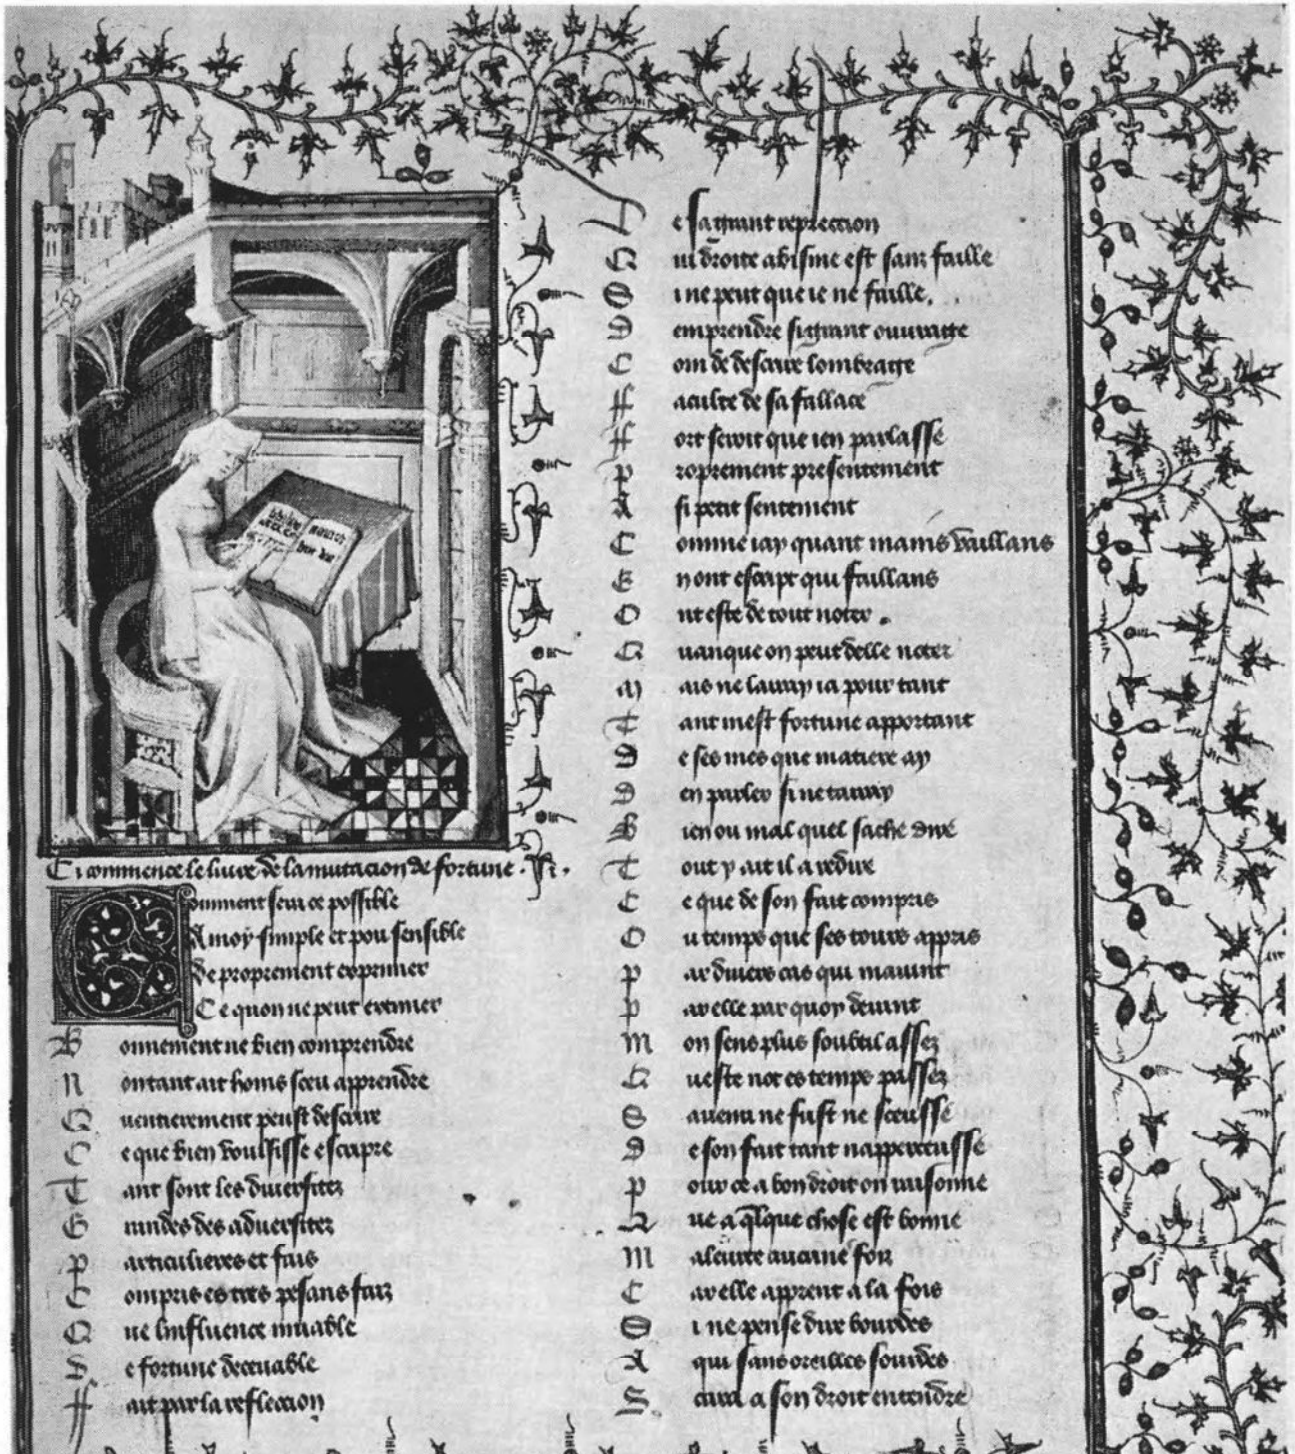 Ci commence le livre de la mutacion de fortune .
Comment sera ce possible
A moy simple et pou sensible
De proprement exprimer
Ce quon ne peut extimer
Bonnement ne bien comprendre
Non tant ait homs sceu apprendre
Quentierement peust descrire
Ce que bien voulsisse escripre
Tant sont les diversitez
Grandes des adversitez
Particulieres et fais
Compris es tres pesans faiz
Que linfluence muable
De fortune decevable
Fait par la reflection
De sa grant repleccion
Qui droite abisme est sanz faille
Si ne peut que ie ne faille.
Demprendre si grant ouuvrage
Com de descrire lombrage
Faculte de sa fallace
Fort seroit que ien parlasse
Proprement presentement
A si petit sentement
Comme iay quant mains vaillans
En ont escript qui faillans
Ont este de tout noter .
Quanque on peut delle noter
Mais ne lairay ia pour tant
Tant mest fortune apportant
De ses mes que matiere ay
Den parler si ne tairay
Bien ou mal quel sache dire
Tout y ait il a redire
Ce que de son fait compris
Ou temps que ses tours appris
Par divers cas qui mavint
Par elle par quoy devint
Mon sens plus soubtil assez
Queste not es temps passez
Savenu ne fust ne sceusse
De son fait tant napperceusse
Pour ce a bon droit on raisonne
Que a qlque chose est bonne
Maleurte aucune foiz
Car elle apprent a la fois
Si ne pense dire bourdes
A qui sans oreilles sourdes
Saura a son droit entendre